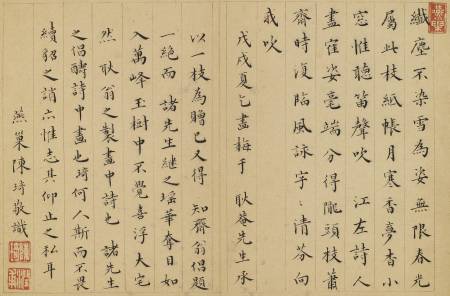 纖塵不染雪為姿無限春光
屬此枝紙帳月寒香夢杳小
窓惟聽笛聲吹 江左詩人
畫寉姿毫端分得隴頭枝蕭
齋時復臨風詠字〻清芬向
我吹
戊戌夏乞畫梅于 耿菴先生承
以一枝為贈已又得 知齋翁倡題
一絶而 諸先生繼之瑶華奪目如
入萬峰玉樹中不覺喜浮大宅
然 耿翁之製畫中詩也 諸先生
之倡酬詩中畫也琦何人斯而不畏
續貂之誚亦惟志其仰止之私耳
燕巢陳琦敬識